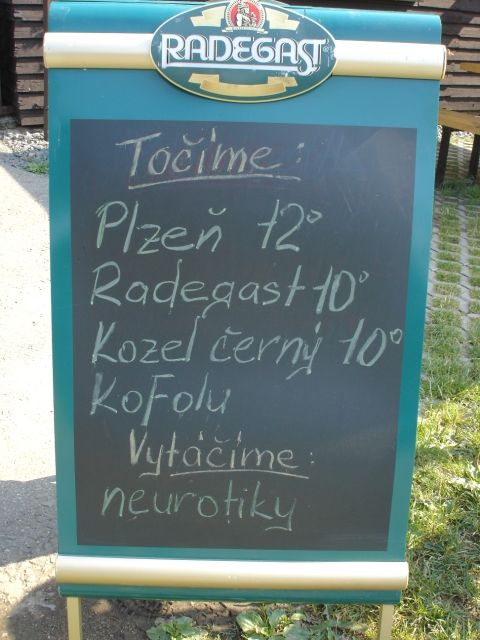 RADEGAST
Točíme:
Plzeň 12°
Radegast 10°
Kozel černý 10°
Kofolu
Vytáčíme:
neurotiky